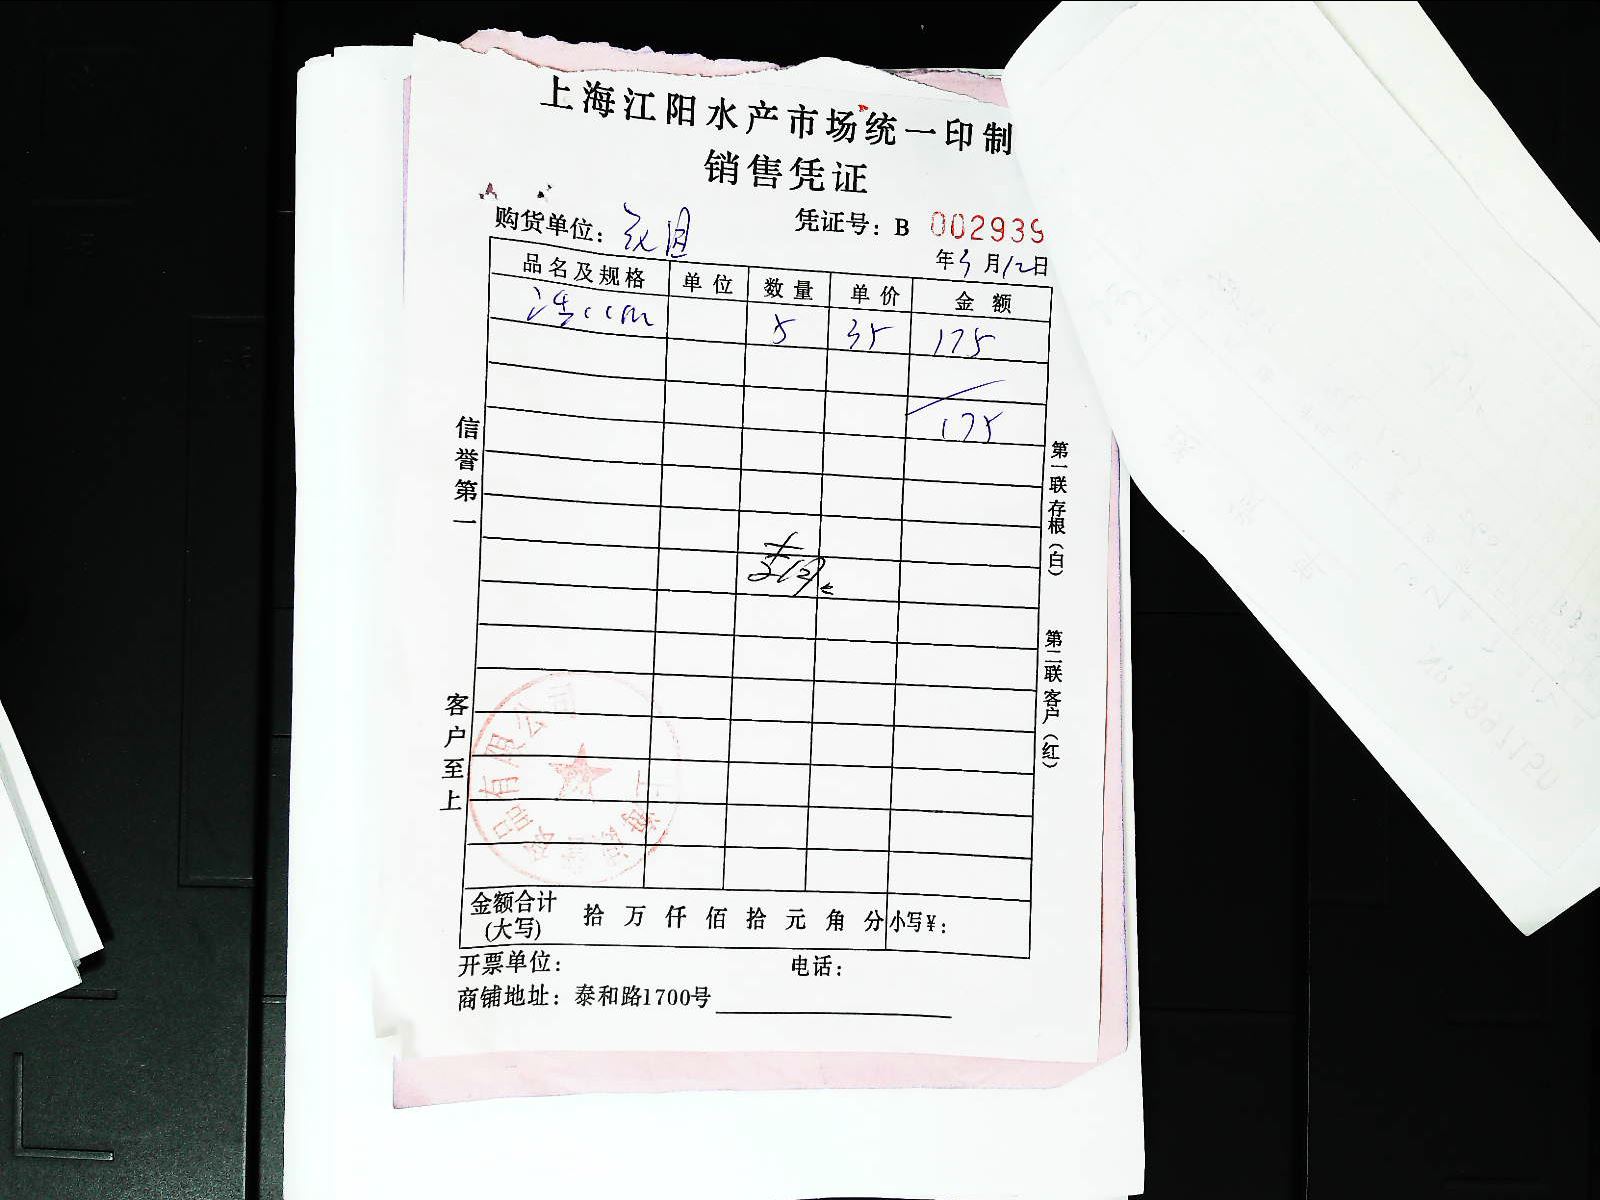 上海江阳水产市场统一印制
销售凭证
购货单位：
凭证号：B 002939
年 3 月 12 日
品名及规格 单位 数量 单价 金额
5 35 175
175
信誉第一
客户至上
第一联存根（白）
第二联客户（红）
金额合计(大写) 拾 万 仟 佰 拾 元 角 分 小写¥：
开票单位： 电话：
商铺地址：泰和路1700号